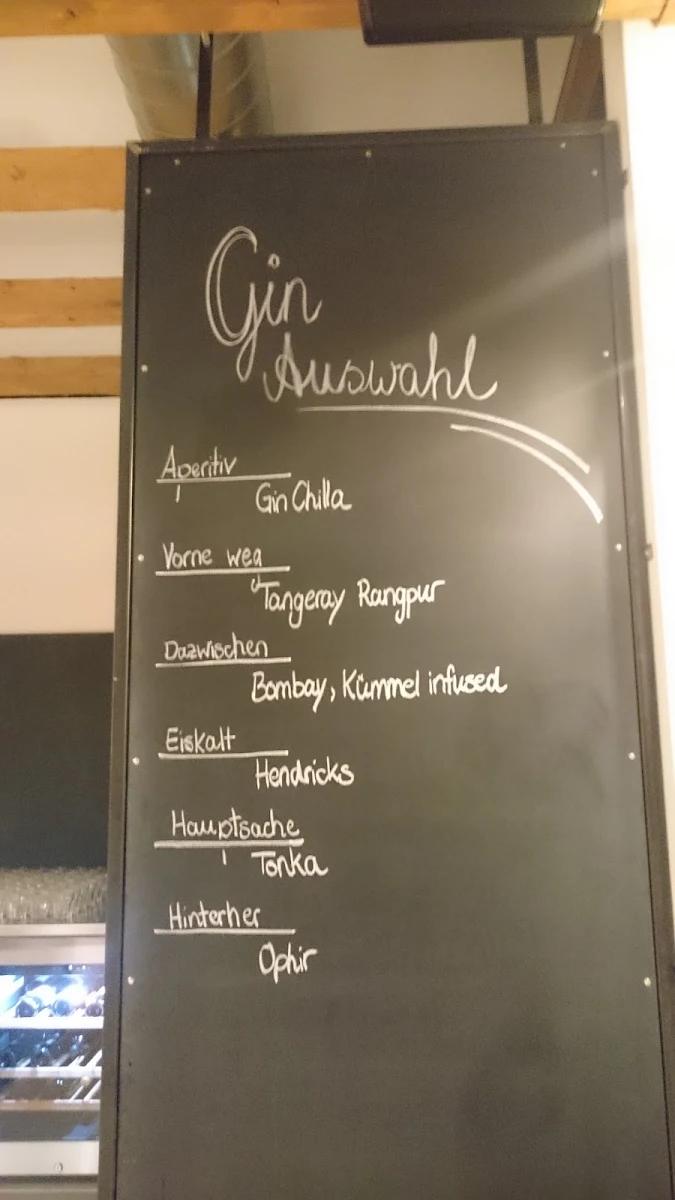 Gin
Auswahl
Aperitiv
Gin Chilla
Vorne weg
Tangeray Rangpur
Dazwischen
Bombay, Kümmel infused
Eiskalt
Hendricks
Hauptsache
Tonka
Hinterher
Ophir